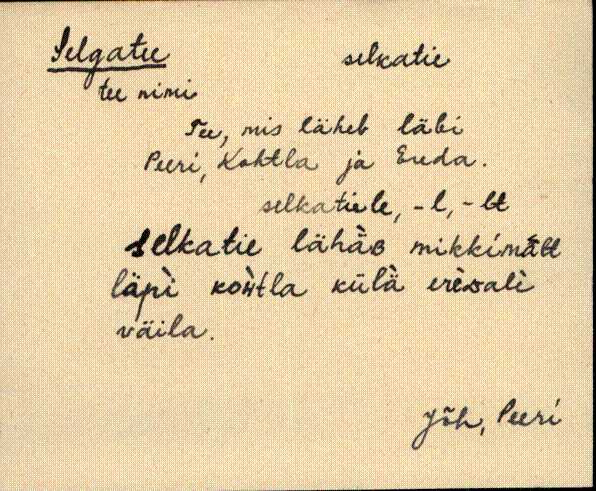 Selgatee selkatie
tee nimi
Tee, mis läheb läbi
Peeri, Kohtla ja Ereda.
selkatiele, -l, -lt
selkatie lähäʙ mikkimätt
läpì koh̀tla külä̀ erèsali
väila.
Jõh, Peeri